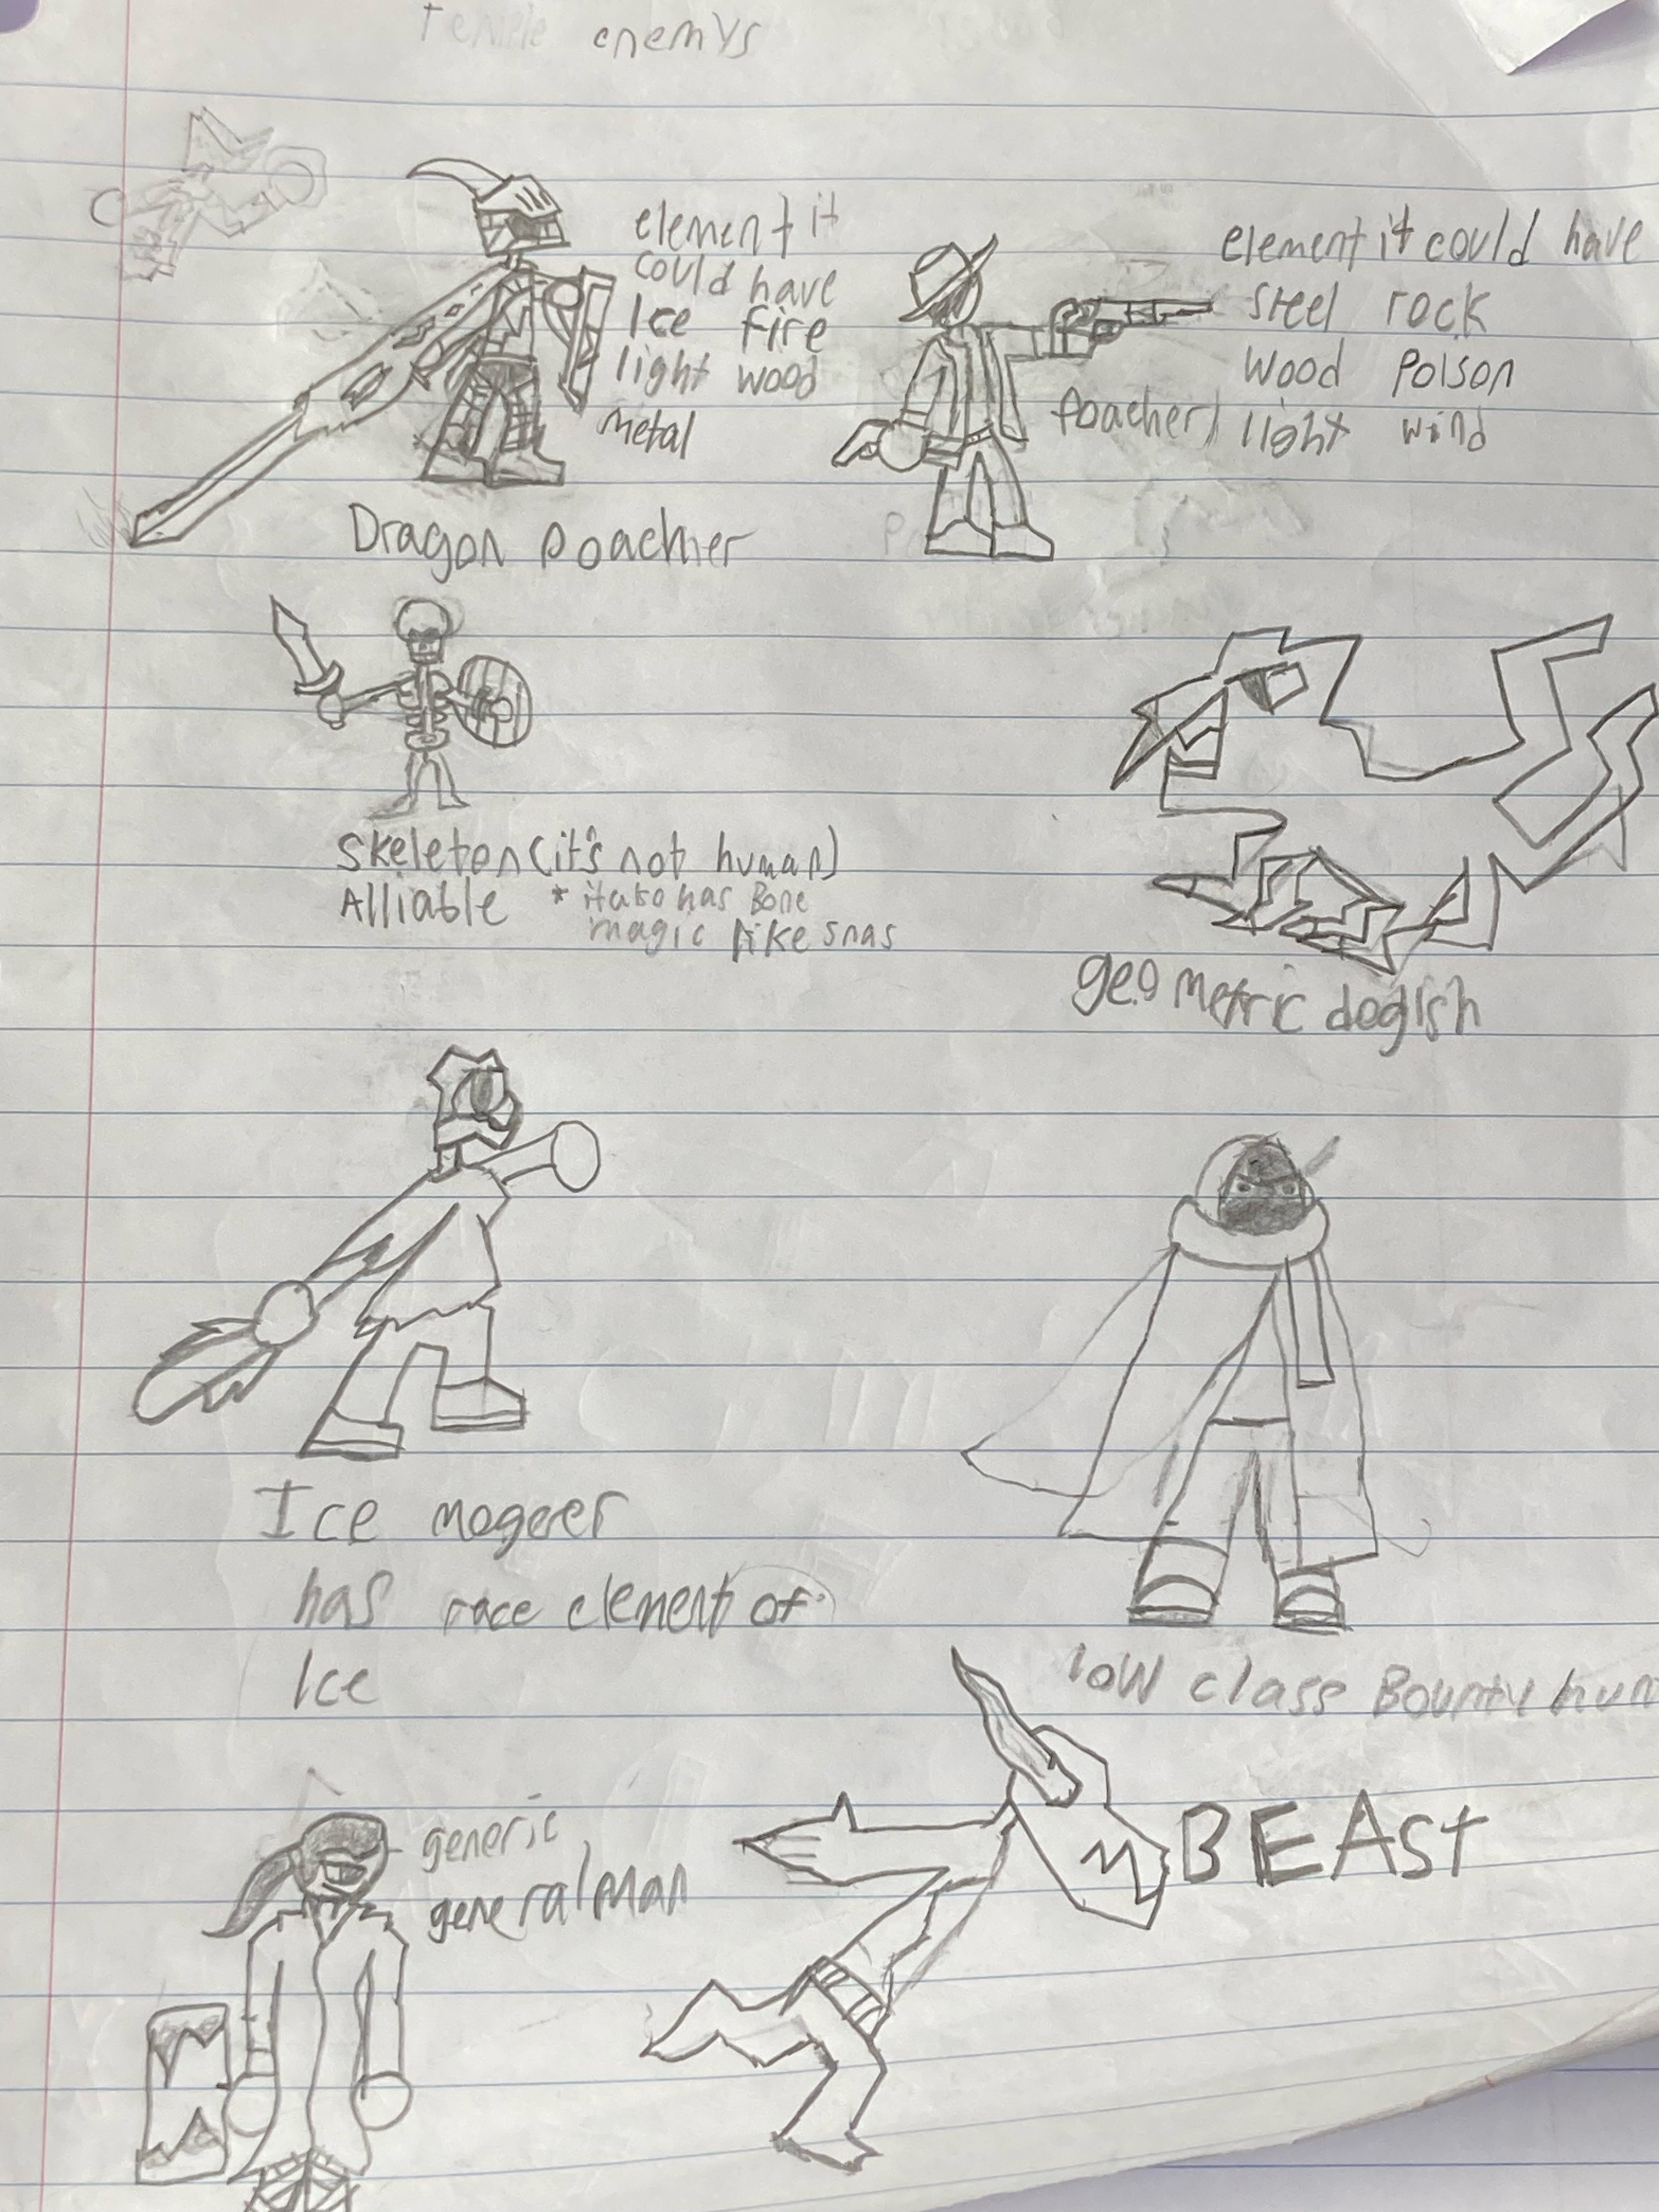 Temple enemys
element it
could have
Ice fire
light wood
metal
Dragon poachier
element it could have
steel rock
wood poison
light wind
poacher
skeleton (it's not human)
Alliable * it also has Bone
magic like snas
geometric dogish
Ice mogerer
has race element of
Ice
low class Bounty hun
generic
general man
BEAst